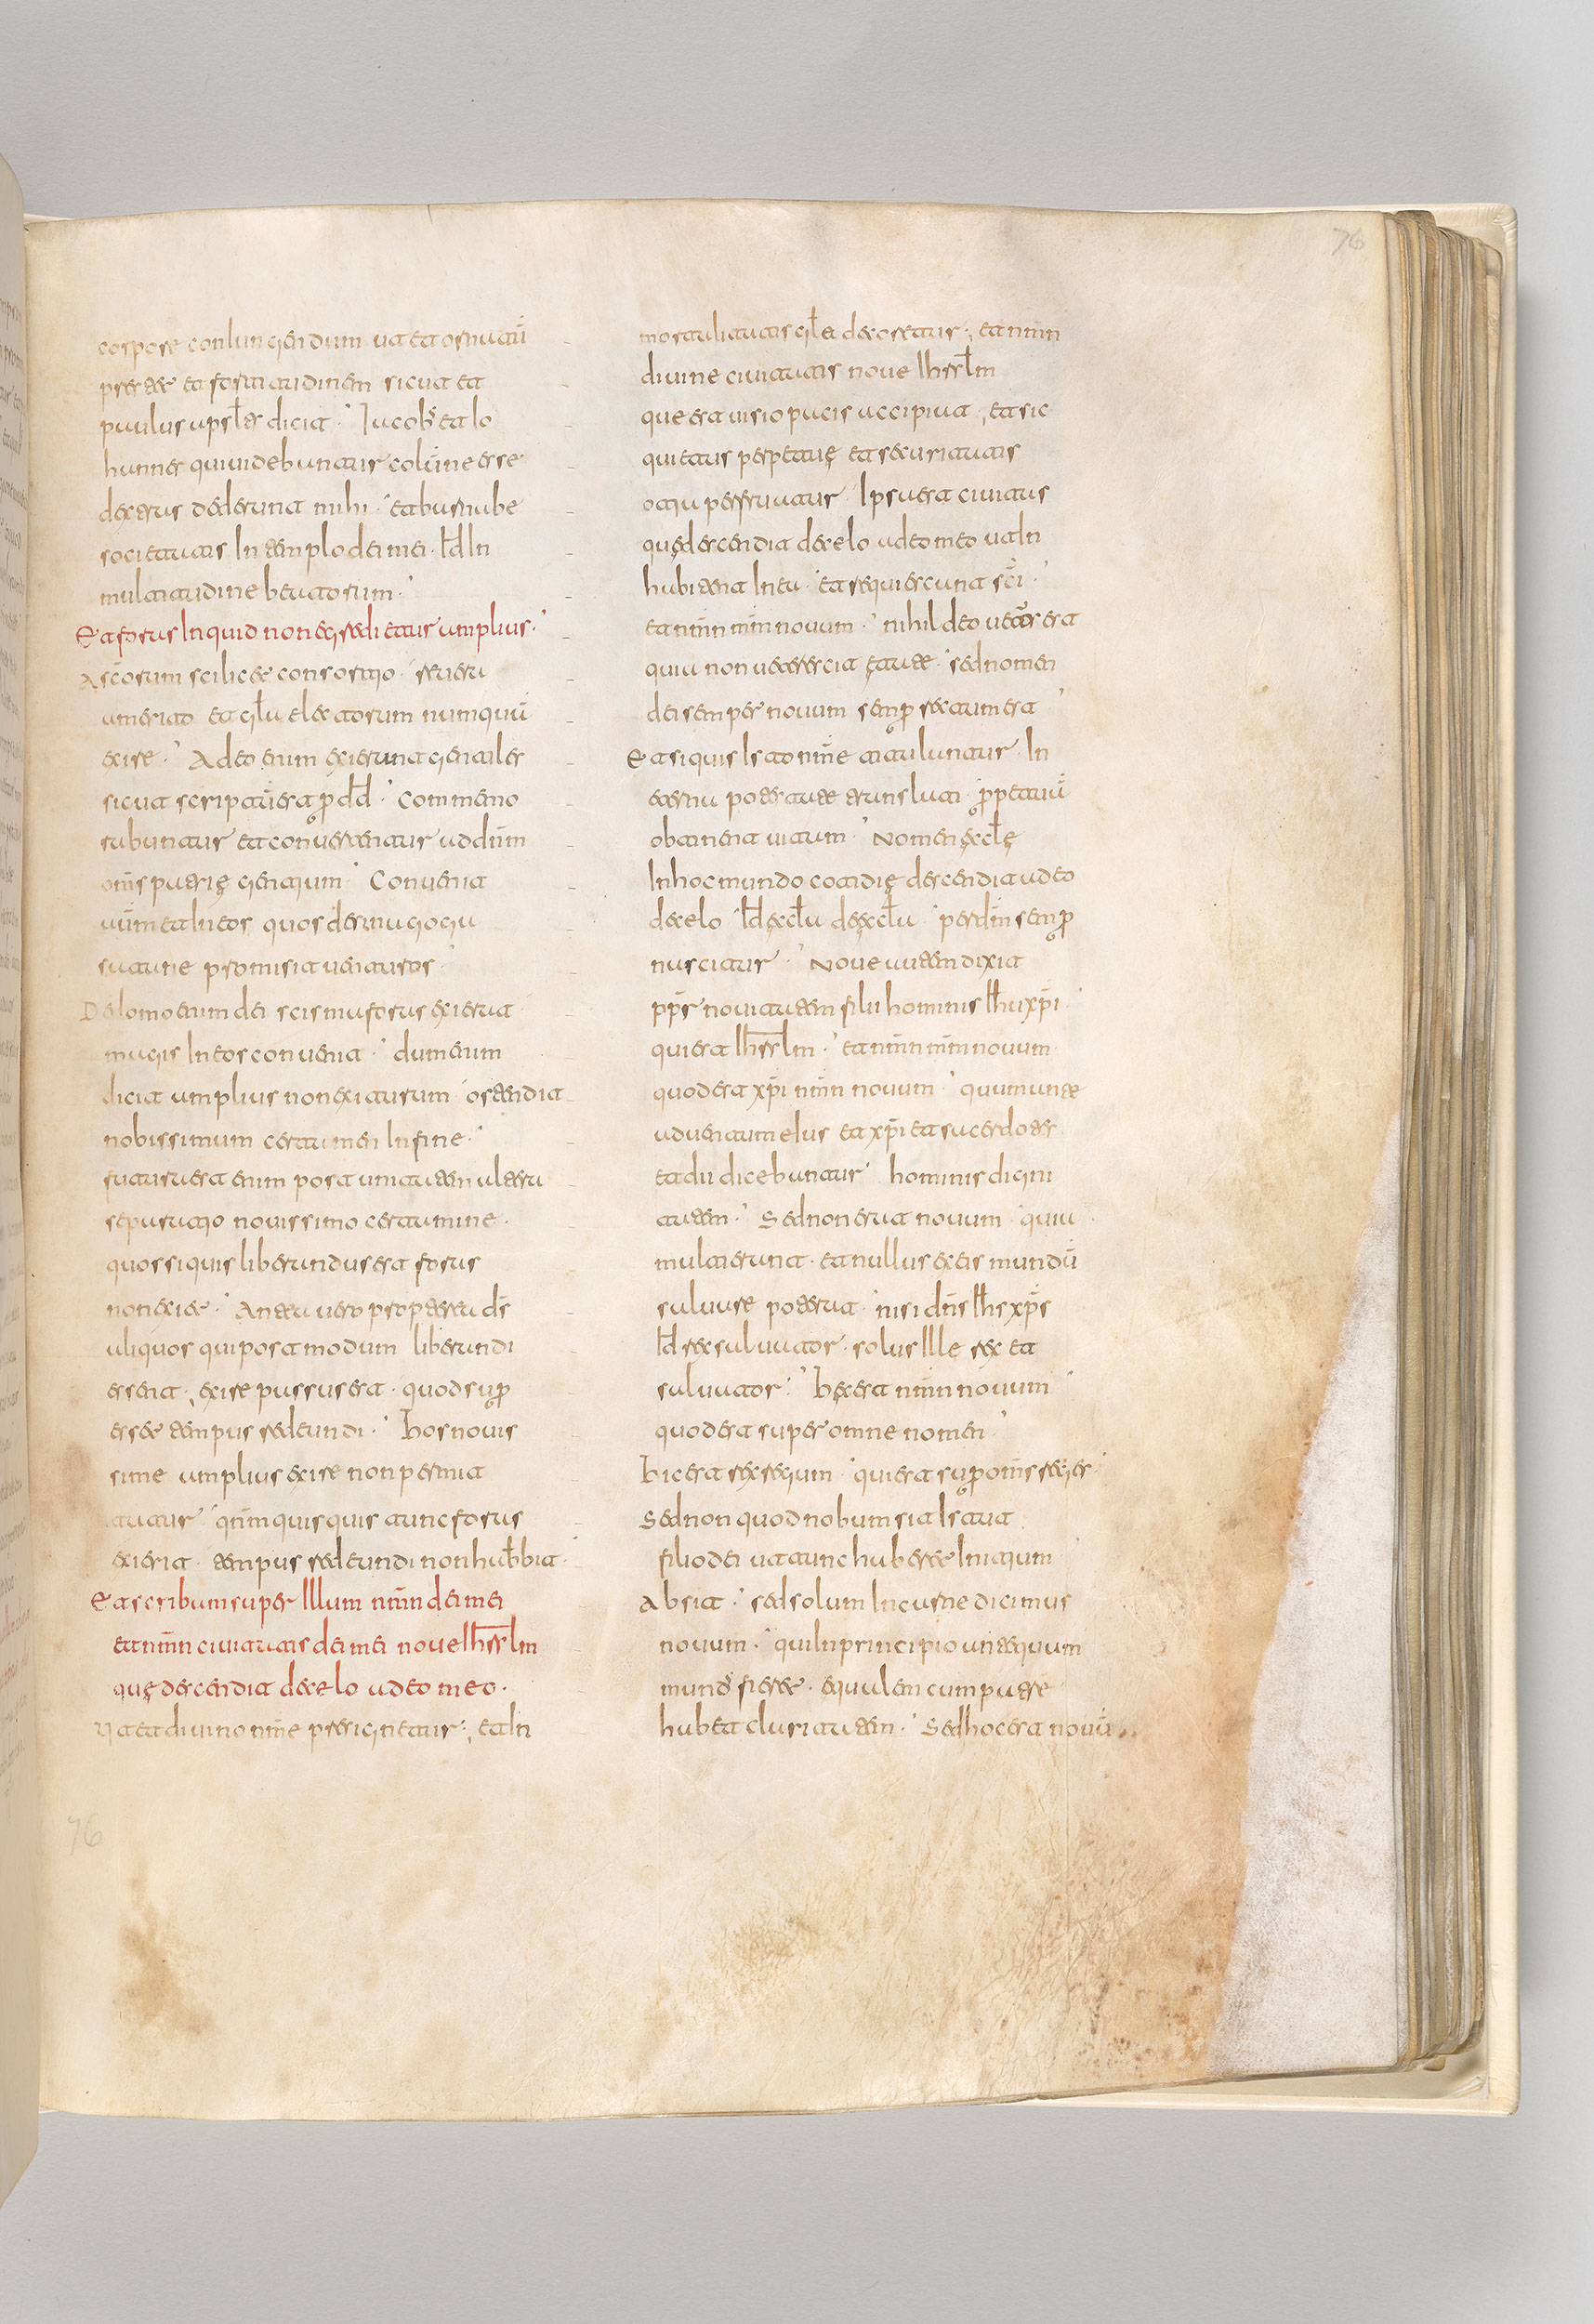 corpore coniungendum ut et ornatũ
preter et fortitudinem sicut et
paulus apsłs dicit · Iacobs et Io
hannes qui uidebantur colũne esse
dextras dederunt mihi · et barnabe
societatis In templo dei mei · Id In
multitudine beatorum ·
Et foras Inquid non egredietur amplius ·
A scorum scilicet consortio ·
amerito et gła electorum numquã
exire · Adeo enim exierunt gentiles
sicut scriptũ est p dd · Commemo
rabuntur et conuertentur ad dnm
oms patrie gentium · Conuenit
aũm et In eos quos de sinagoga
satane promisit uenturos ·
De domo enim dei scisma foras exierat
magis In eos conuenit · dum enim
dicit amplius non exiturum · ostendit
nobissimum certamen In fine ·
futurus est enim post unitatem altera
separatio nouissimo certamine ·
quos siquis liberandus est foras
non exiet · Antea uero propterea ds
aliquos qui postmodum liberandi
essent · exire passus est · quod sup
esset tempus redeundi · hos nouis
sime amplius exire non permit
tatur · qnm quisquis tunc foras
exierit · tempus redeundi non habbit ·
Et scribam super Illum nmn dei mei
et nmn ciuitatis dei mei noue Ihrslm
quę descendit de celo a deo meo ·
Ut et diuino nmne presignetur · et In
mortalitatis gła decoretur · et nmn
diuine ciuitatis noue Ihrslm
que est uisio pacis accipiat · et sic
quietus perpetuę et securitatis
otiu perfruatur · Ipsa est ciuitas
quę descendit de celo a deo meo ut In
habitent In ea · et requiescunt sci ·
et nmn mm nouum · nihil deo uetus est
quia non ueterescit ętate · sed nomen
dei semper nouum semp rectum est
Et siquis Isto nmne titulantur · In
eterna potestate luci · ppetuũ
obtinent uitam · Nomen ęcłę
In hoc mundo cotidię descendit a deo
de celo · Id ęcła de ęcła · per dnm semp
nascitur · Noue autem dixit
ppr nouitatem filii hominis Ihu xpi ·
qui est Ihrslm · et nmn mm nouum
quod est xpi nmn nouum · quum ante
aduentum eius et xpi et sacerdotes
et dii dicebantur · hominis digni
tatem · Sed non erat nouum · quia
multi erunt · et nullus ex eis mundũ
saluare poterat · nisi dns Ihs xps
Id rex saluator · solus Ille rex et
saluator · hęc est nmn nouum
quod est super omne nomen ·
hic est rex regum · qui est sup oms reges ·
Sed non quod nobum sit Istut
filio dei ut tunc haberet Initium
Absit · sed solum In carne dicimus
nouum · qui In principio antequam
mund fieret · equalem cum patre
habet claritatem · Sed hoc est nouũ
76
76